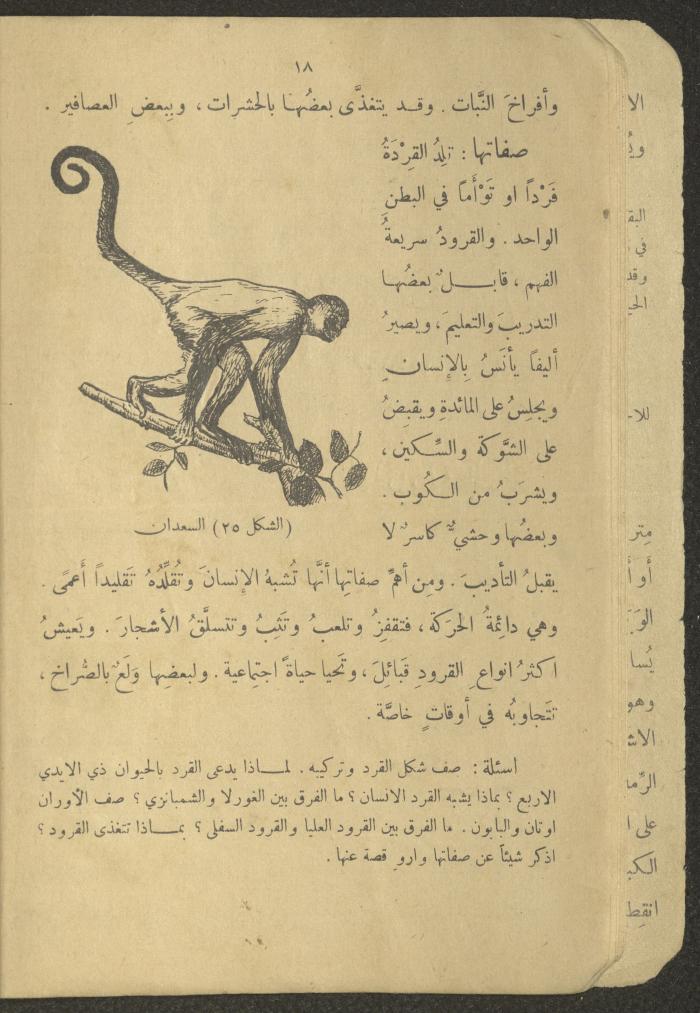 ١٨
وأفراخَ النَّبات . وقد يتغذَّى بعضُها بالحشرات ، وببعضِ العصافير .
صفاتها : تلِدُ القِرْدَةُ
فَرْداً او تَوْأَماً في البطنِ
الواحد . والقرودُ سريعةُ
الفهم ، قابلٌ بعضُها
التدريبَ والتعليمَ ، ويصيرُ
أليفاً يأنَسُ بِالإِنسانِ
ويجلِسُ على المائدةِ ويقبِضُ
على الشَّوكة والسِّكين ،
ويشرَبُ من الكُوب .
وبعضُها وحشيٌّ كاسرٌ لا
(الشكل ٢٥) السعدان
يقبلُ التأديبَ . ومِن أهمِّ صفاتِها أنَّها تُشبهُ الإِنسانَ وتُقلِّدُهُ تَقليداً أَعمًى .
وهي دائِمةُ الحرَكة ، فتقفِزُ وتلعبُ وتَثِبُ وتتسلَّقُ الأشجارَ . ويَعيشُ
اكثرُ انواعِ القرودِ قَبائِلَ ، وتَحيا حياةً اجتِماعية . ولبعضِها وَلَعٌ بالصُّراخ ،
تتَجاوبُه في أوقاتٍ خاصَّة .
اسئلة : صف شكل القرد وتركيبه . لماذا يدعى القرد بالحيوان ذي الايدي
الاربع ؟ بماذا يشبه القرد الانسان ؟ ما الفرق بين الغورلا والشمبانزي ؟ صف الأوران
اوتان والبابون . ما الفرق بين القرود العليا والقرود السفلى ؟ بماذا تتغذى القرود ؟
اذكر شيئاً عن صفاتها واروِ قصة عنها .